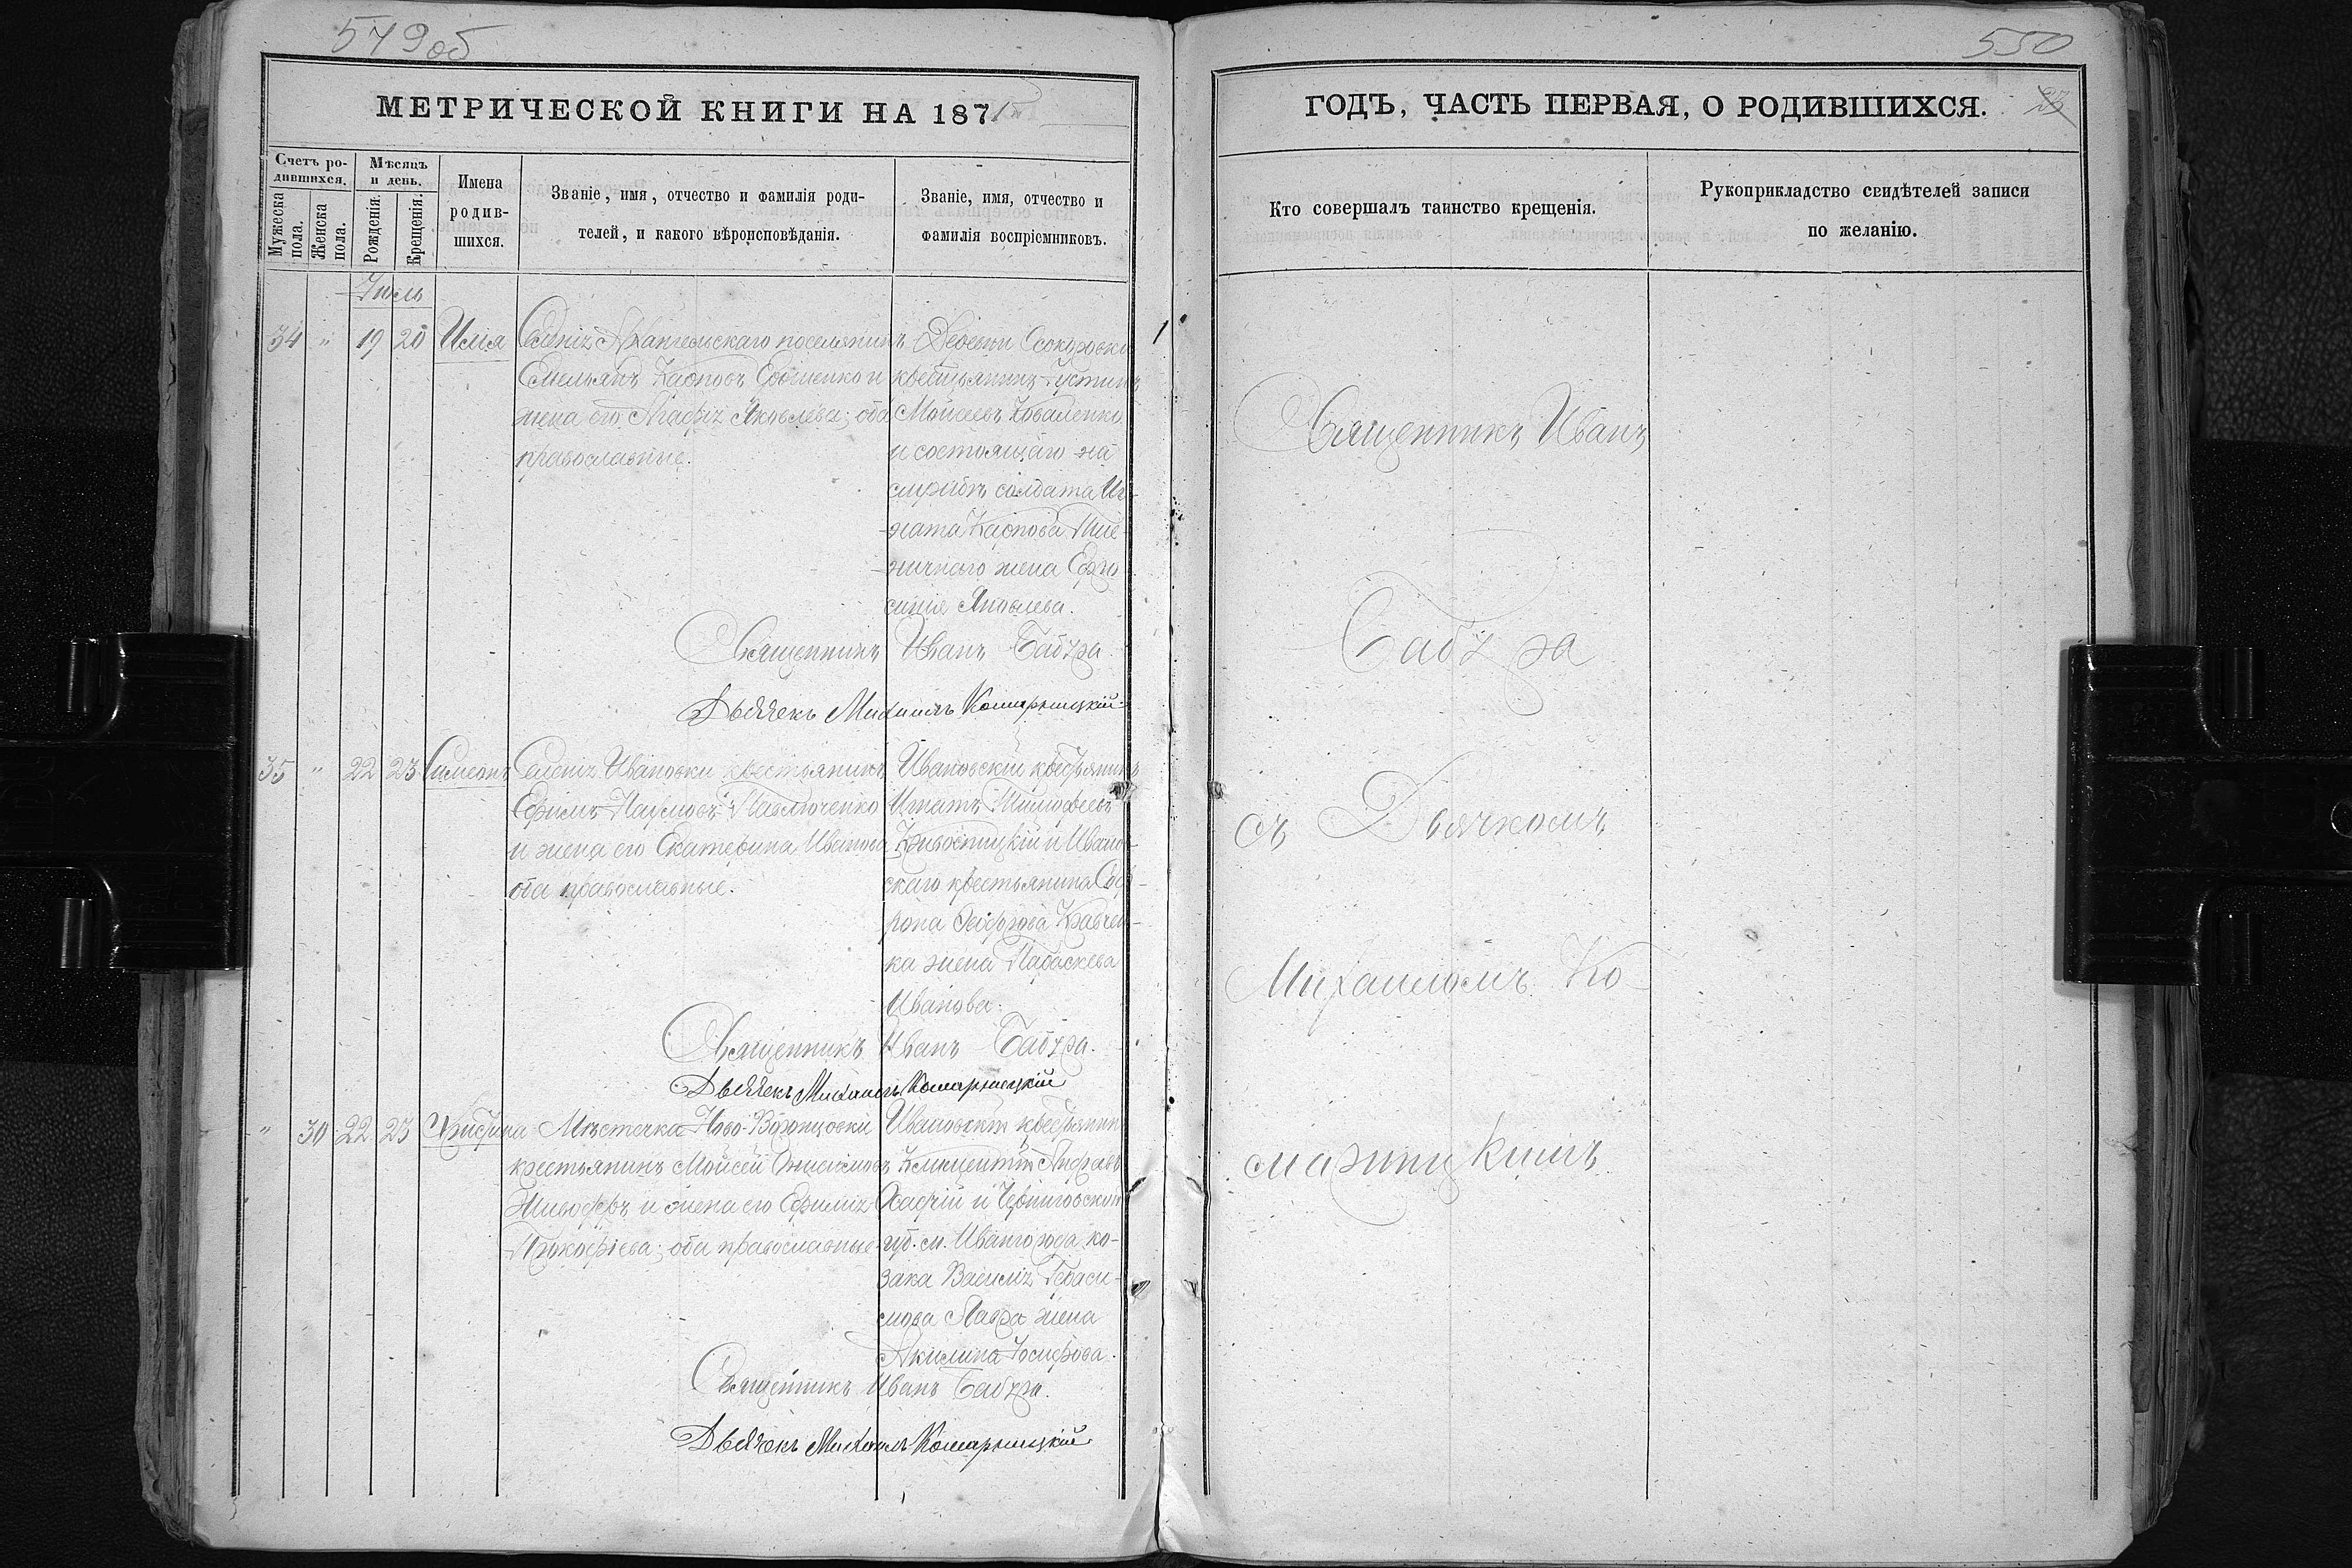 549об
МЕТРИЧЕСКОЙ КНИГИ НА 1871й
Счетъ родившихся.
Мужеска пола.
Женска пола.
Мѣсяцъ и день.
Рожденія.
Крещенія.
Имена родившихся.
Званіе, имя, отчество и фамилія роди-
телей, и какого вѣроисповѣданія.
Званіе, имя, отчество и
фамилія воспріемниковъ.
Іюль
34 " 19 20 Илія
Селенія Архангельскаго поселянинъ
Емельянъ Карповъ и
жена его Агафія Яковлева; оба
православные.
Деревни Осокоровки
крестьянинъ Іустинъ
Моисеевъ Коваленко
и состоящаго на
службѣ солдата Иг-
ната Карпова
жена Евфро-
синія Яковлева.
Священникъ Иванъ Бабура
Дьячекъ Михаилъ Комарницкій
35 " 22 23 Симеонъ
Селенія Ивановки крестьянинъ
Ефимъ Павлюченко
и жена его Екатерина Иванова
оба православные.
Ивановскій крестьянинъ
Игнатъ Тимофеевъ
и Иванов-
скаго крестьянина Соф-
рона Кравчен-
ка жена Параскева
Иванова.
Священникъ Иванъ Бабура.
Дьячекъ Михаилъ Комарницкій
" 30 22 23 Христина
Мѣстечка Ново-Воронцовки
крестьянинъ Моисей Онисимовъ
и жена его Ефимія
Прокофіева; оба православные.
Ивановскій крестьянинъ
Климентій
и Черниговской
губ. м. Ивангорода ко-
зака Василія Гераси-
мова Лавра жена
Акилина Іосифова.
Священникъ Иванъ Бабура.
Дьячекъ Михаилъ Комарницкій
550
ГОДЪ, ЧАСТЬ ПЕРВАЯ, О РОДИВШИХСЯ. 23
Кто совершалъ таинство крещенія.
Рукоприкладство свидѣтелей записи
по желанію.
Священникъ Иванъ
Бабура
съ Дьячкомъ
Михаиломъ Ко-
марницкимъ